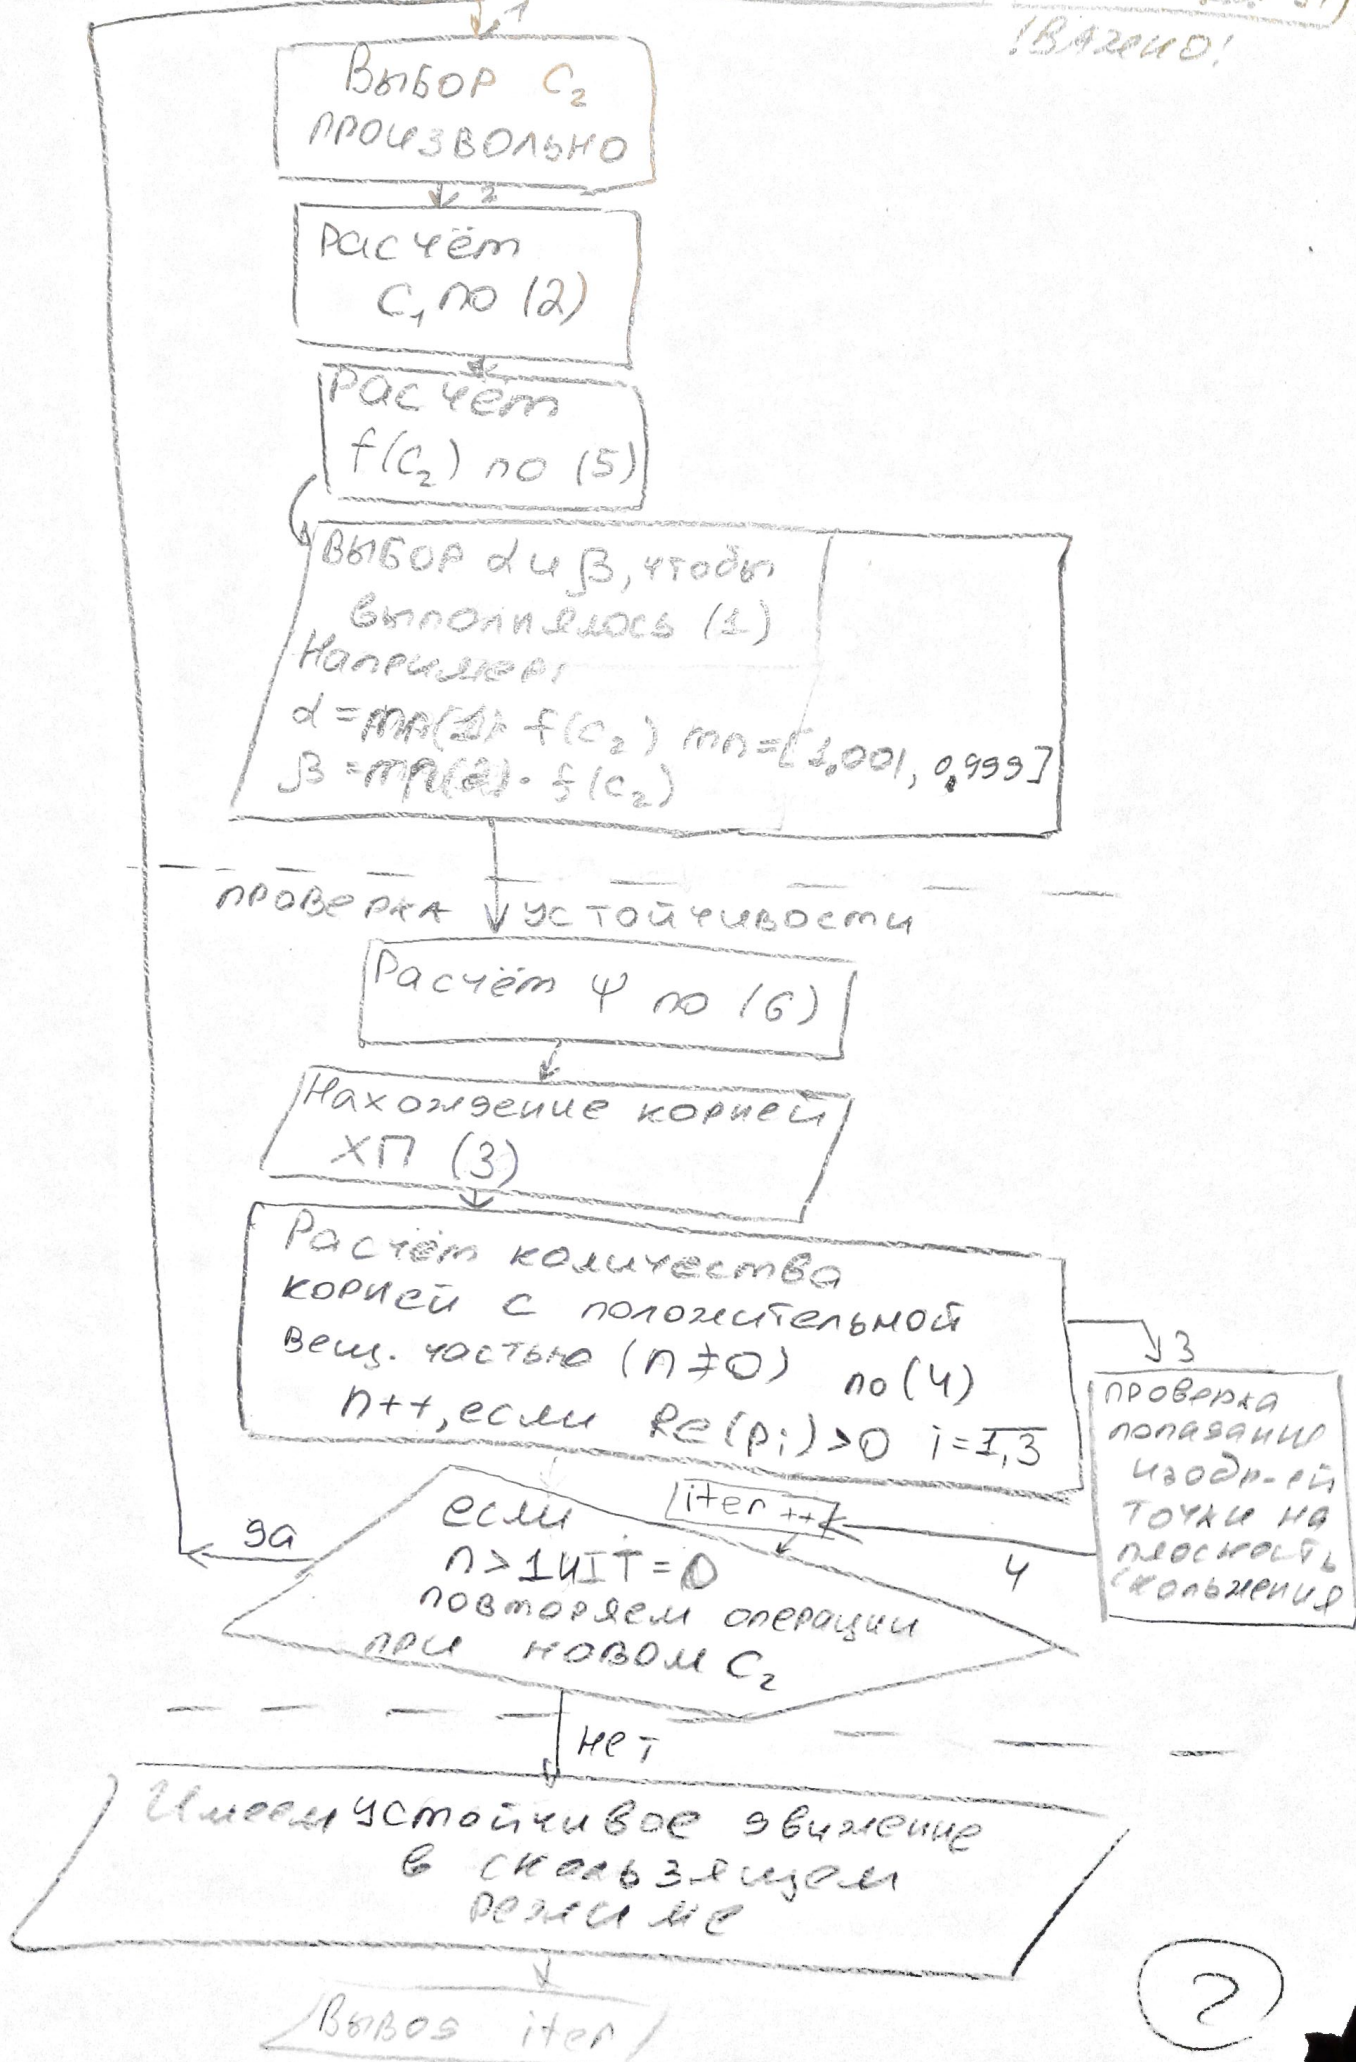 !ВАЖНО!
1
ВЫБОР C₂
ПРОИЗВОЛЬНО
2
Расчёт
C₁ по (2)
Расчёт
f(C₂) по (5)
ВЫБОР α и β, чтобы
выполнялось (1)
Например:
α = mn(1)· f(C₂) mn=[1,001, 0,999]
β = mn(2)· f(C₂)
проверка устойчивости
Расчёт Ψ по (6)
Нахождение корней
ХП (3)
Расчёт количества
корней с положительной
вещ. частью (n≠0) по (4)
n++, если Re(pᵢ)>0 i=1,3
3
проверка
попадания
изобр-ей
точки на
плоскость
скольжения
4
iter++
если
n>1 и IT=0
повторяем операции
при новом C₂
да
нет
Имеем устойчивое движение
в скользящем
режиме
Вывод iter
2